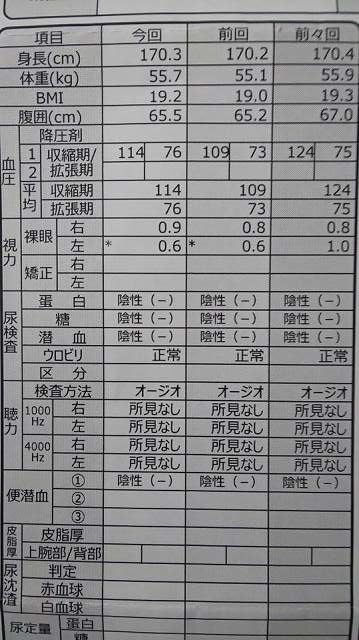 項目 今回 前回 前々回
身長(cm) 170.3 170.2 170.4
体重(kg) 55.7 55.1 55.9
BMI 19.2 19.0 19.3
腹囲(cm) 65.5 65.2 67.0
血圧 降圧剤
1 収縮期/拡張期 114 76 109 73 124 75
2
平均 収縮期 114 109 124
拡張期 76 73 75
視力 裸眼 右 0.9 0.8 0.8
左 * 0.6 * 0.6 1.0
矯正 右
左
尿検査 蛋白 陰性(−) 陰性(−) 陰性(−)
糖 陰性(−) 陰性(−) 陰性(−)
潜血 陰性(−) 陰性(−) 陰性(−)
ウロビリ 正常 正常 正常
区分
聴力 検査方法 オージオ オージオ オージオ
1000Hz 右 所見なし 所見なし 所見なし
左 所見なし 所見なし 所見なし
4000Hz 右 所見なし 所見なし 所見なし
左 所見なし 所見なし 所見なし
便潜血 ① 陰性(−) 陰性(−) 陰性(−)
②
③
皮脂厚 皮脂厚
上腕部/背部
尿沈渣 判定
赤血球
白血球
尿定量 蛋白
糖